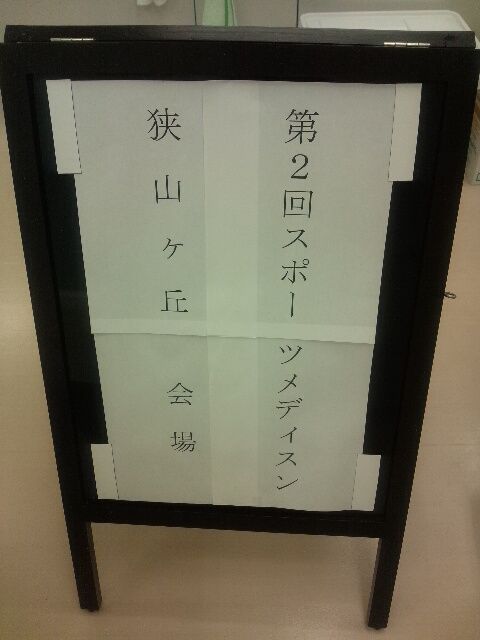 第2回スポーツメディスン
狭山ヶ丘 会場